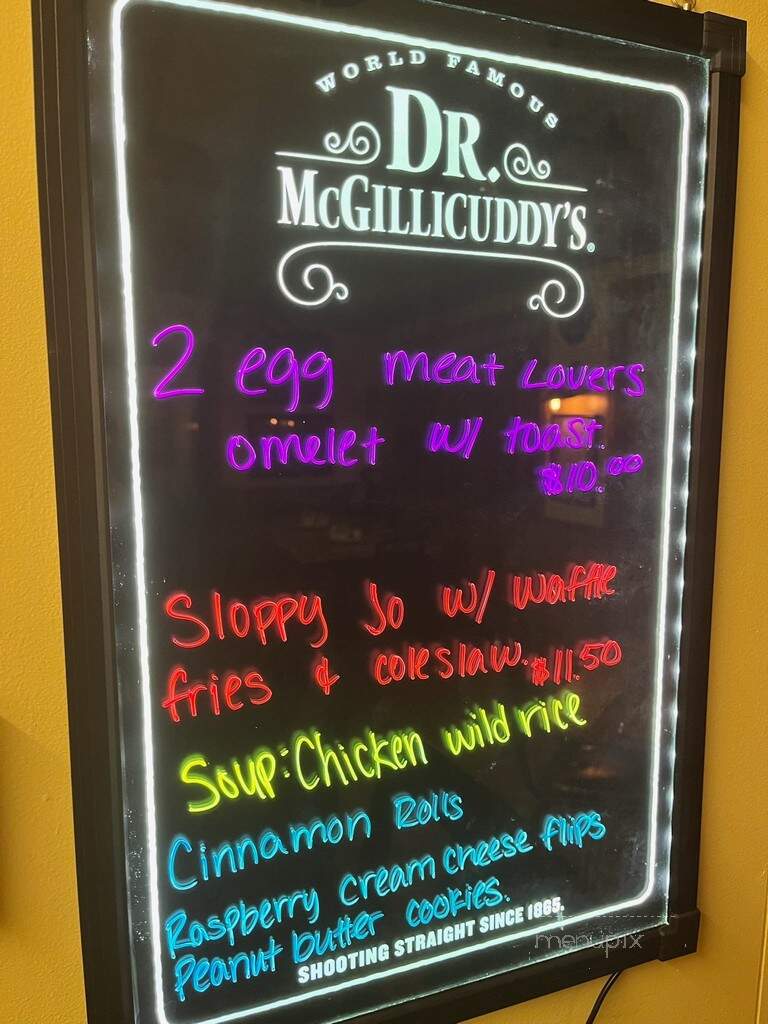 WORLD FAMOUS
DR.
McGILLICUDDY'S.
2 egg meat Lovers
omelet w/ toast.
$10.00
Sloppy Jo w/ waffle
fries & coleslaw. $11.50
Soup: Chicken wild rice
Cinnamon Rolls
Raspberry Cream cheese flips
Peanut butter cookies.
SHOOTING STRAIGHT SINCE 1865.
menupix